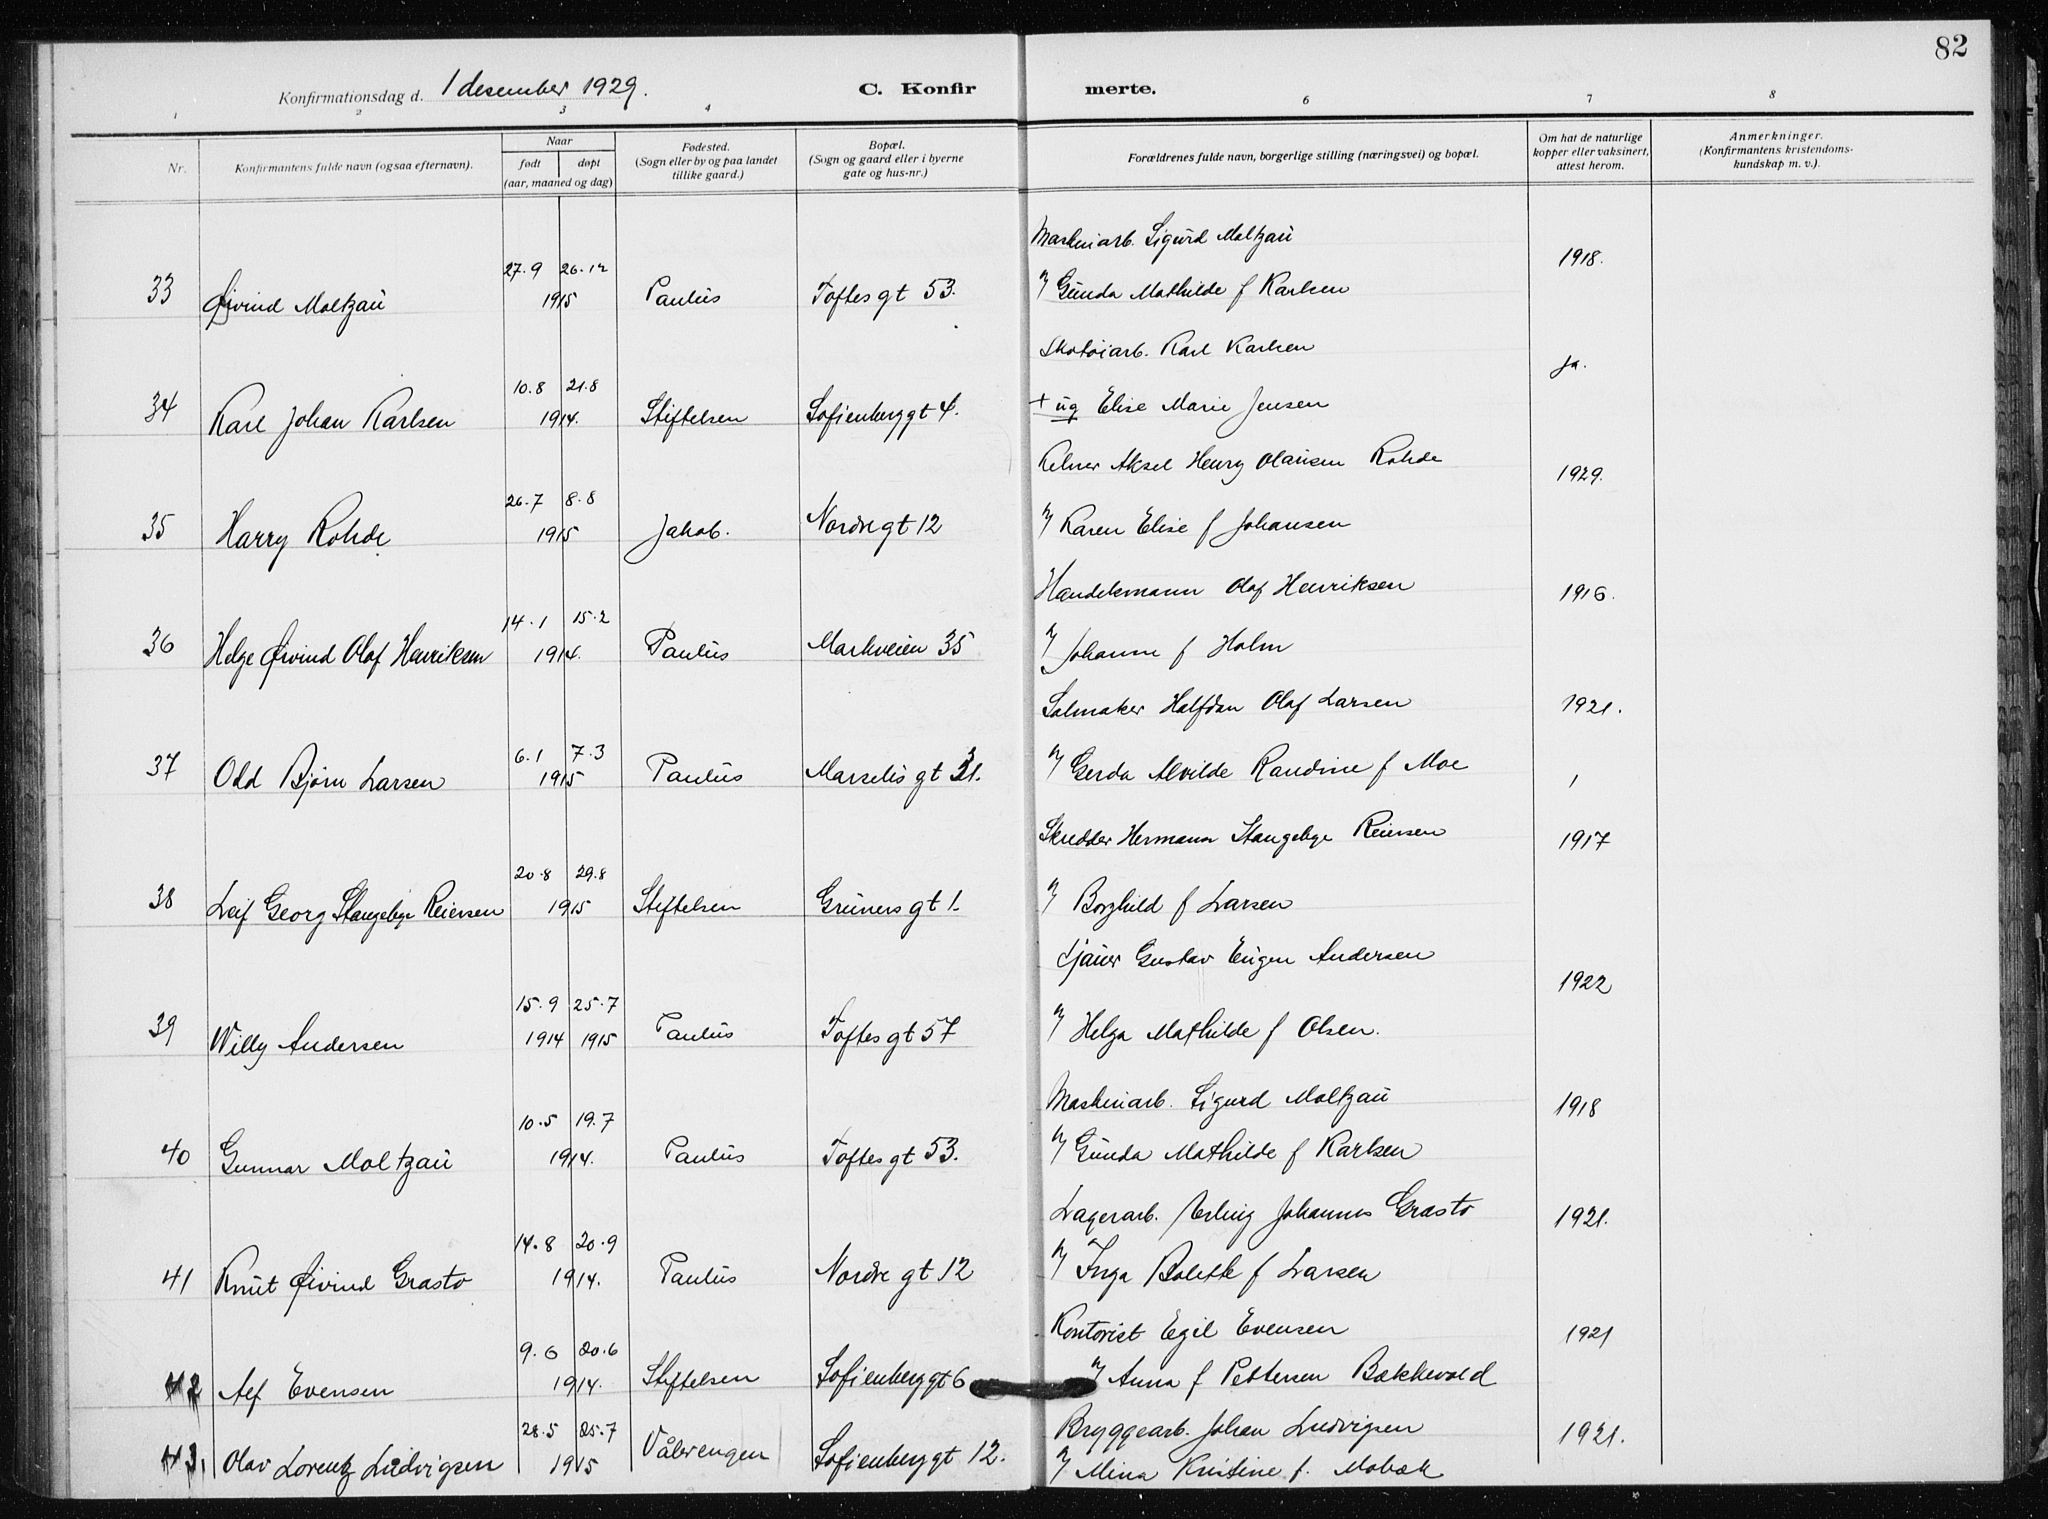 82
Konfirmationsdag d. 1 desember 1929.
C. Konfirmerte.
1 2 3 4 6 7 8
Nr.
Konfirmantens fulde navn (ogsaa efternavn).
Naar
født
døpt
(aar, maaned og dag)
Fødested.
(Sogn eller by og paa landet
tillike gaard.)
Bopæl.
(Sogn og gaard eller i byerne
gate og hus-nr.)
Forældrenes fulde navn, borgerlige stilling (næringsvei) og bopæl.
Om hat de naturlige
kopper eller vaksinert,
attest herom.
Anmerkninger.
(Konfirmantens kristendoms-
kundskap m. v.).
Maskinarb. Sigurd Moltzau
27.9 26.12 1918.
33 Øivind Moltzau 1915 Paulus Toftes gt 53. n/ Gunda Mathilde f Karlsen
Skotøiarb. Karl Karlsen
10.8 21.8 ja.
34 Karl Johan Karlsen 1914. Stiftelsen Sofienberggt 4. + ug Elise Marie Jensen
Kelner Aksel Henry Olausen Rohde
26.7 8.8 1929.
35 Harry Rohde 1915 Jakob. Nordregt 12 n/ Karen Elise f Johansen
Handelsmann Olaf Henriksen
14.1 15.2 1916.
36 Helge Øivind Olaf Henriksen 1914. Paulus Markveien 35 n/ Johanne f Holm
Salmaker Halfdan Olaf Larsen 1921.
6.1 7.3
37 Odd Bjørn Larsen 1915 Paulus Marselis gt 31. n/ Gerda Alvilde Randine f Moe
Skredder Hermann Stangebye Reiersen
20.8 29.8 1917
38 Leif Georg Stangebye Reiersen 1915 Stiftelsen Grüners gt 1. n/ Borghild f Larsen
Sjauer Gustav Eugen Andersen
15.9 25.7 1922
39 Willy Andersen 1914 1915 Paulus Toftes gt 57 n/ Helga Mathilde f Olsen.
Maskinarb. Sigurd Moltzau
10.5 19.7 1918
40 Gunnar Moltzau 1914. Paulus Toftes gt 53. n/ Gunda Mathilde f Karlsen
Lagerarb. Erling Johannes Grasto
14.8 20.9 1921.
41 Knut Øivind Grasto 1914. Paulus Nordre gt 12 n/ Inga Bolette f Larsen
Kontorist Egil Evensen
9.6 20.6 1921
42 Alf Evensen 1914. Stiftelsen Sofienberggt 6 n/ Anna f Pettersen Bækkevold
28.5 25.7 Bryggearb. Johan Ludvigsen 1921.
43. Olav Lorentz Ludvigsen 1915 Vålerengen Sofienberggt 12. n/ Mina Kristine f. Mobæk